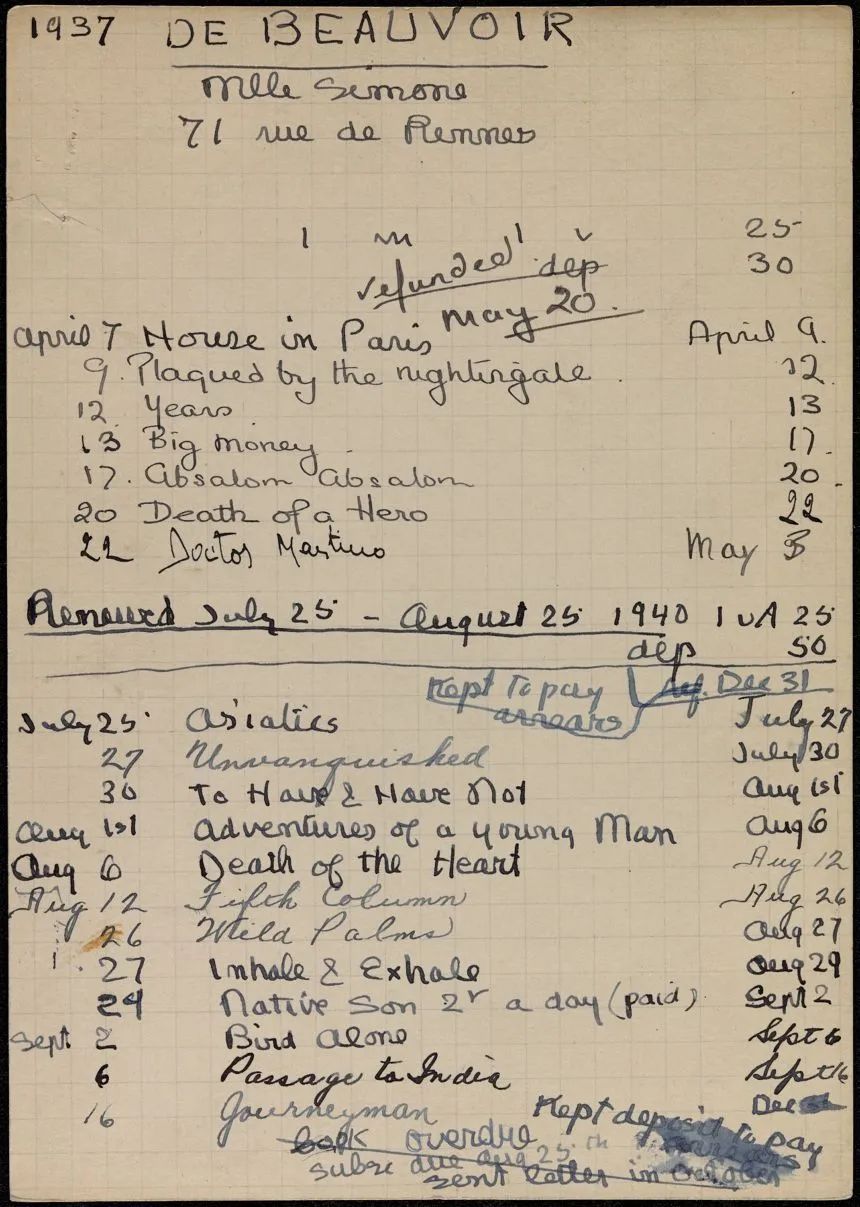 1937 DE BEAUVOIR
Mlle Simone
71 rue de Rennes
1 m 1 v 25
refunded dep 30
May 20.
April 7 House in Paris April 9.
9. Plaqued by the nightingale. 12.
12 Years 13
13 Big money. 17.
17. Absalom Absalom 20.
20 Death of a Hero 22
22 Doctor Martino May 3
Renewed July 25 - August 25 1940 1 v A 25
dep 50
Kept to pay Dec 31
arrears
July 25 Asiatics July 27
27 Unvanquished July 30
30 To Have & Have Not Aug 1st
Aug 1st Adventures of a young Man Aug 6
Aug 6 Death of the Heart Aug 12
Aug 12 Fifth Column Aug 26
26 Wild Palms Aug 27
27 Inhale & Exhale Aug 29
29 Native Son 2r a day (paid) Sept 2
Sept 2 Bird Alone Sept 6
6 Passage to India Sept 16
16 Journeyman Dec
Kept deposit to pay
book overdue
subsc due Aug 25th
sent letter in October